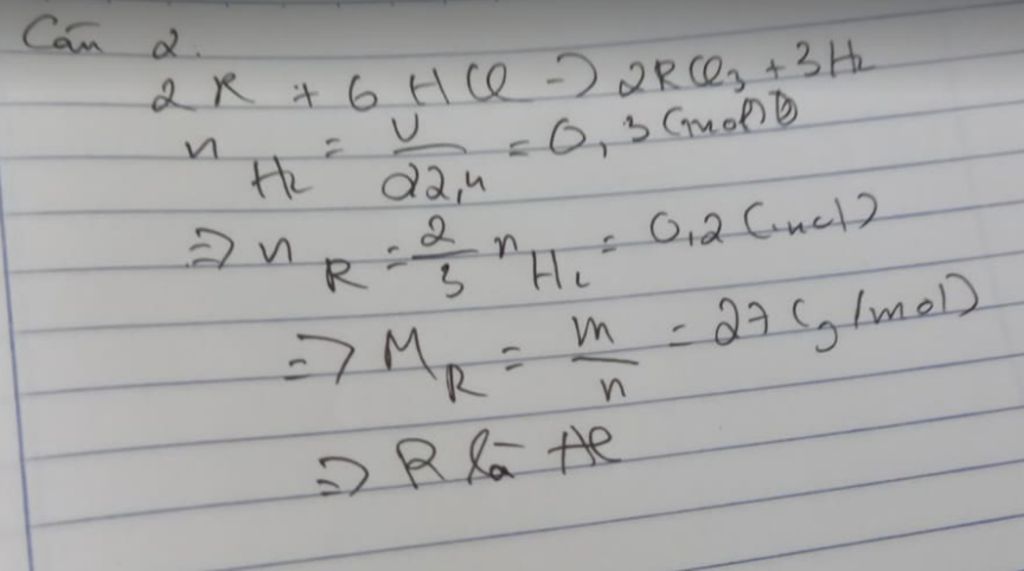 Câu 2.
2R + 6HCl → 2RCl₃ + 3H₂
n H₂ = V/22,4 = 0,3 (mol)
⇒ n R = 2/3 n H₂ = 0,2 (mol)
⇒ M R = m/n = 27 (g/mol)
⇒ R là Al